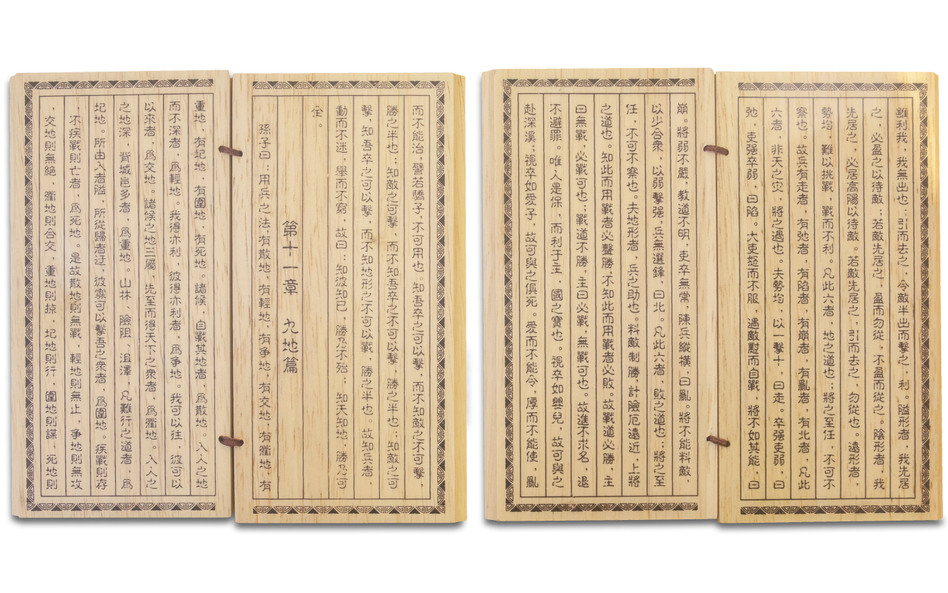 雖利我，我無出也；引而去之，令敵半出而擊之，利。隘形者，我先居
之，必盈之以待敵；若敵先居之，盈而勿從，不盈而從之。險形者，我
先居之，必居高陽以待敵；若敵先居之，引而去之，勿從也。遠形者，
勢均，難以挑戰，戰而不利。凡此六者，地之道也；將之至任，不可不
察也。故兵有走者，有弛者，有陷者，有崩者，有亂者，有北者，凡此
六者，非天之災，將之過也。夫勢均，以一擊十，曰走。卒强吏弱，曰
弛。吏强卒弱，曰陷。大吏怒而不服，遇敵懟而自戰，將不知其能，曰
崩。將弱不嚴，教道不明，吏卒無常，陳兵縱橫，曰亂。將不能料敵，
以少合衆，以弱擊强，兵無選鋒，曰北。凡此六者，敗之道也；將之至
任，不可不察也。夫地形者，兵之助也。料敵制勝，計險厄遠近，上將
之道也。知此而用戰者必勝，不知此而用戰者必敗。故戰道必勝，主
曰無戰，必戰可也；戰道不勝，主曰必戰，無戰可也。故進不求名，退
不避罪，唯人是保，而利于主，國之寶也。視卒如嬰兒，故可與之
赴深溪；視卒如愛子，故可與之俱死。愛而不能令，厚而不能使，亂
而不能治，譬若驕子，不可用也。知吾卒之可以擊，而不知敵之不可擊，
勝之半也；知敵之可擊，而不知吾卒之不可以擊，勝之半也；知敵之可
擊，知吾卒之可以擊，而不知地形之不可以戰，勝之半也。故知兵者，
動而不迷，舉而不窮。故曰：知彼知己，勝乃不殆；知天知地，勝乃可
全。
第十一章 九地篇
孫子曰：用兵之法，有散地，有輕地，有爭地，有交地，有衢地，有
重地，有圮地，有圍地，有死地。諸侯，自戰其地者，爲散地。入人之地
而不深者，爲輕地。我得亦利，彼得亦利者，爲爭地。我可以往，彼可以
以來者，爲交地。諸侯之地三屬，先至而得天下之衆者，爲衢地。入人之
之地深，背城邑多者，爲重地。山林、險阻、沮澤，凡難行之道者，爲
圮地。所由入者隘，所從歸者迂，彼寡可以擊吾之衆者，爲圍地。疾戰則存
，不疾戰則亡者，爲死地。是故散地則無戰，輕地則無止，爭地則無攻
，交地則無絕，衢地則合交，重地則掠，圮地則行，圍地則謀，死地則